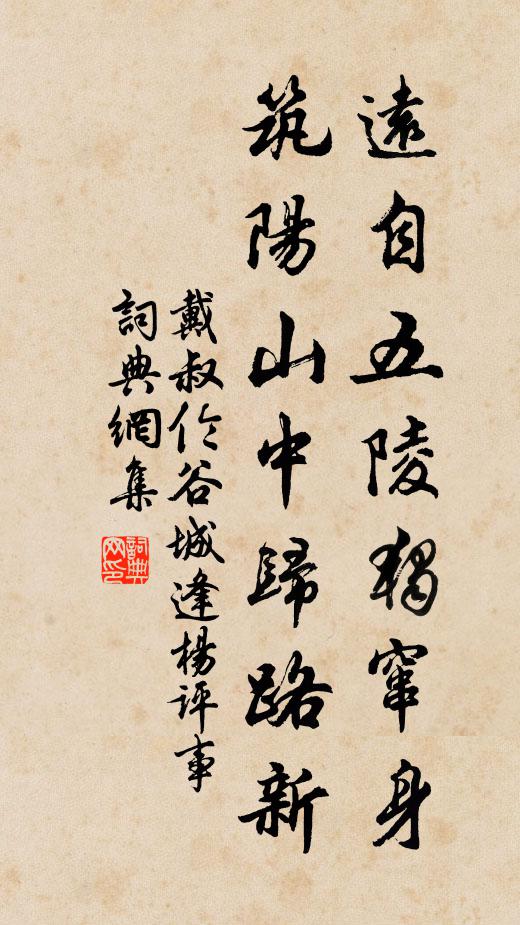 遠自五陵獨竄身
筑陽山中歸路新
戴叔伦谷城逢楊評事
詞典網集
詞典網印